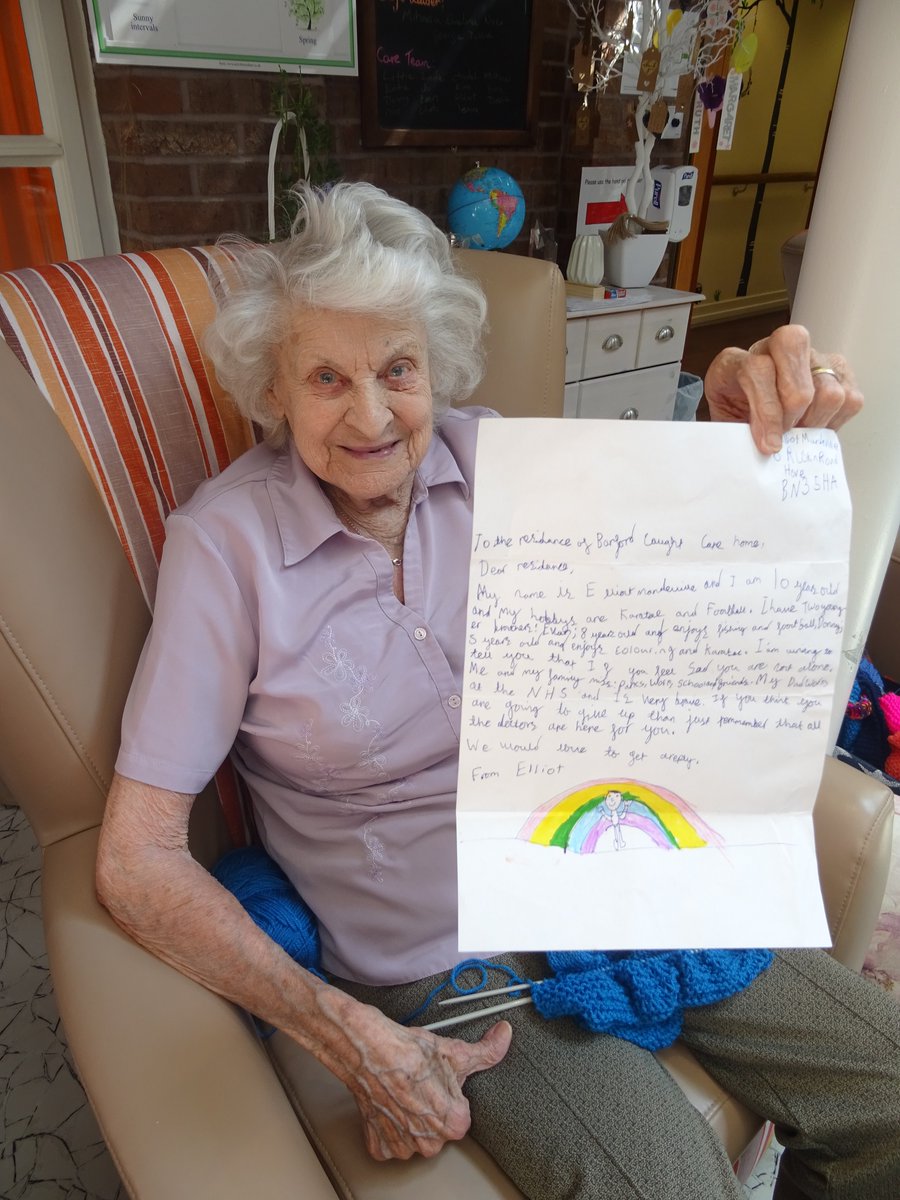 Sunny
intervals
Spring
Care Team
Please use the hand gel
PURELL
MARGARET
RUTH
Road
Hove
BN3 5HA
To the residance of Barford Caught Care home,
Dear residance,
My name is Elliot and I am 10 year ould
and My hobbys are Karatae and Football. I have Two young
er brother: Evan; 8 year ould and enjoys fishing and football. Donny;
5 years ould and enjoys colouring and Karatae. I'am wring to
tell you that If you feel sad you are not alone.
Me and my family miss: parks, work, school and friends. My Dad works
at the NHS and is very brave. If you think you
are going to give up than just remmember that all
the doctors are here for you.
We would love to get a repy.
From Elliot